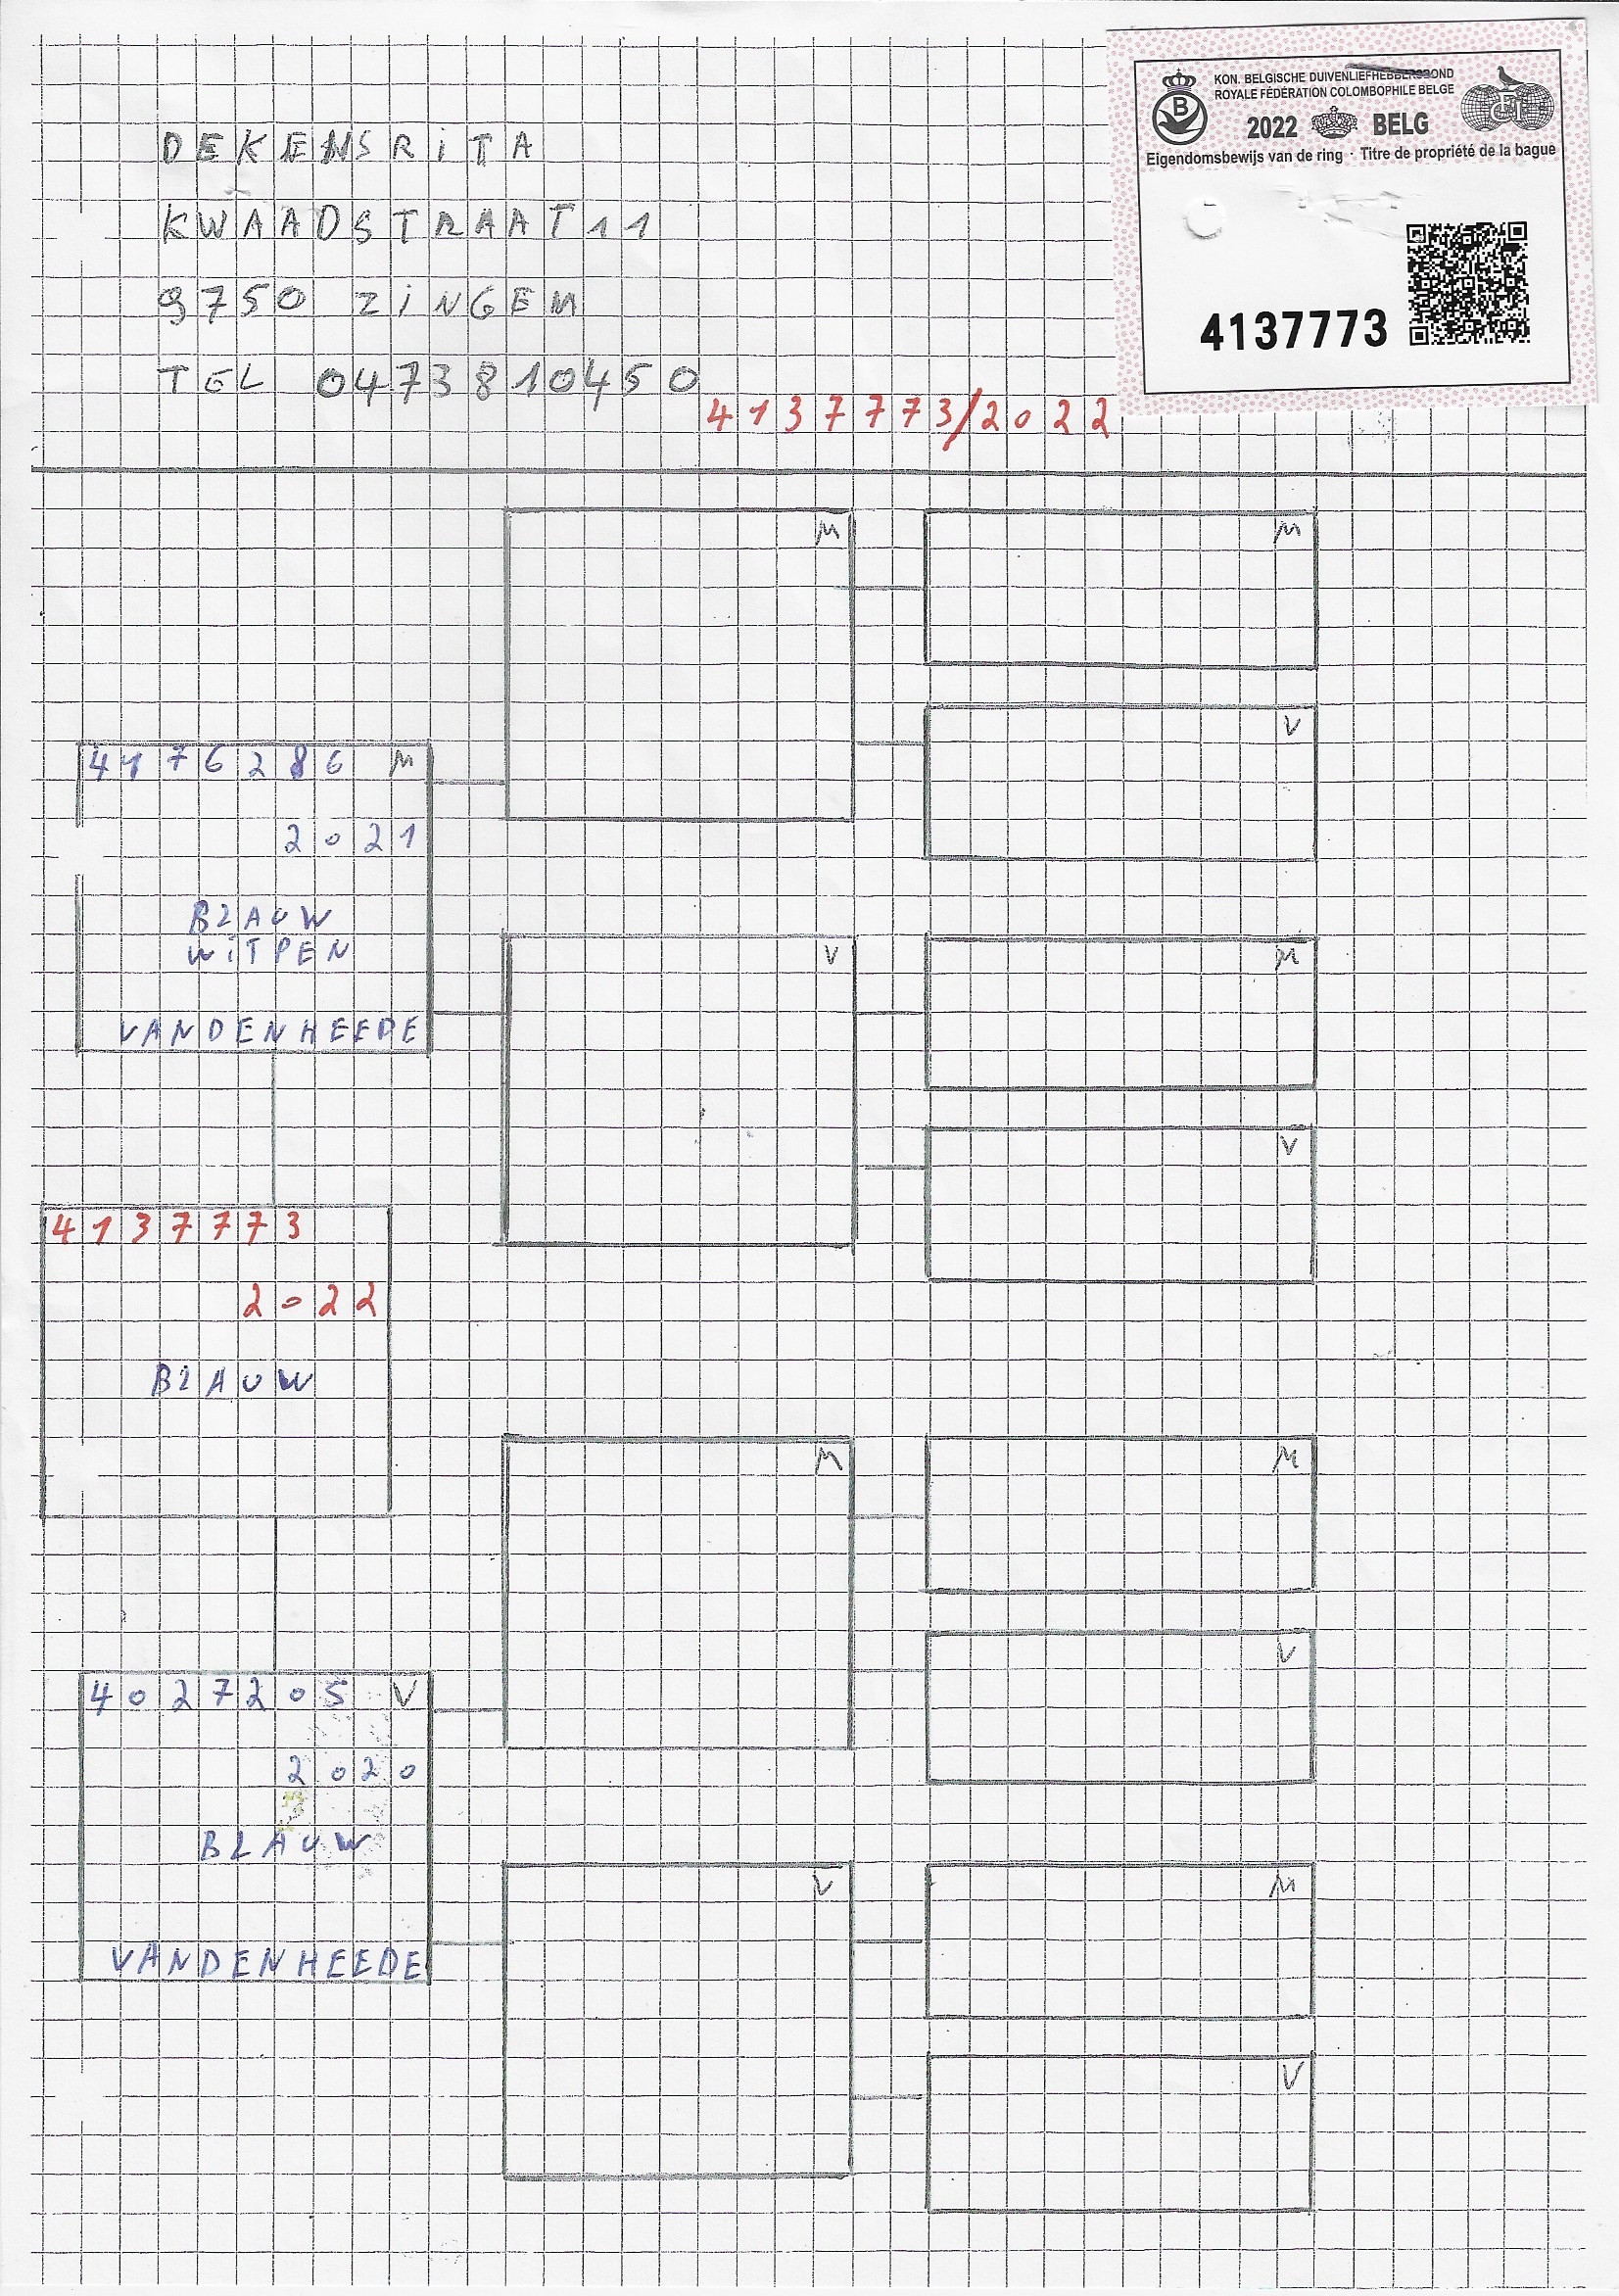 KON. BELGISCHE DUIVENLIEFHEBBERSBOND
ROYALE FÉDÉRATION COLOMBOPHILE BELGE
2022 BELG
Eigendomsbewijs van de ring · Titre de propriété de la bague
4137773
DEKENS RiTA
KWAADSTRAAT 11
9750 ZiNGEM
TEL 0473810450
4137773/2022
M
M
V
4176286 M
2021
BLAUW
WiTPEN
VANDENHEEDE
V
M
V
4137773
2022
BLAUW
M
M
V
4027205 V
2020
BLAUW
VANDENHEEDE
V
M
V